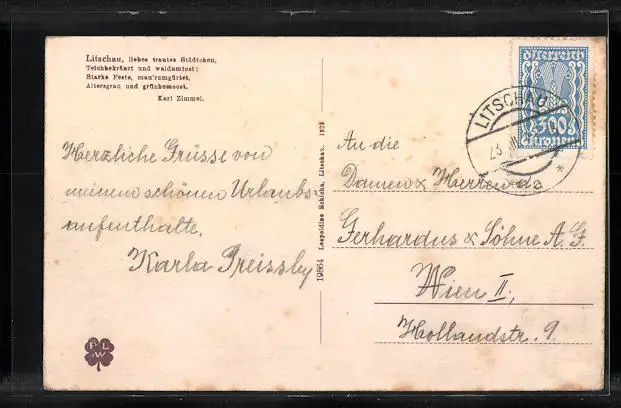 Litschau, liebes trautes Städtchen,
Teichbekränzt und waldumtost:
Starke Feste, mau'rumgürtet,
Altersgrau und grünbemoost.
Karl Zimmel.
Herzliche Grüsse von
meinem schönen Urlaubs-
aufenthalte.
Karla Preissley
PLW
19864 Leopoldine Schühs, Litschau. 1923
österreich
300
Kronen
LITSCHAU
23
An die
Damen & Herren da
Gerhardus & Söhne A. G.
Wien II.,
Hollandstr. 9.